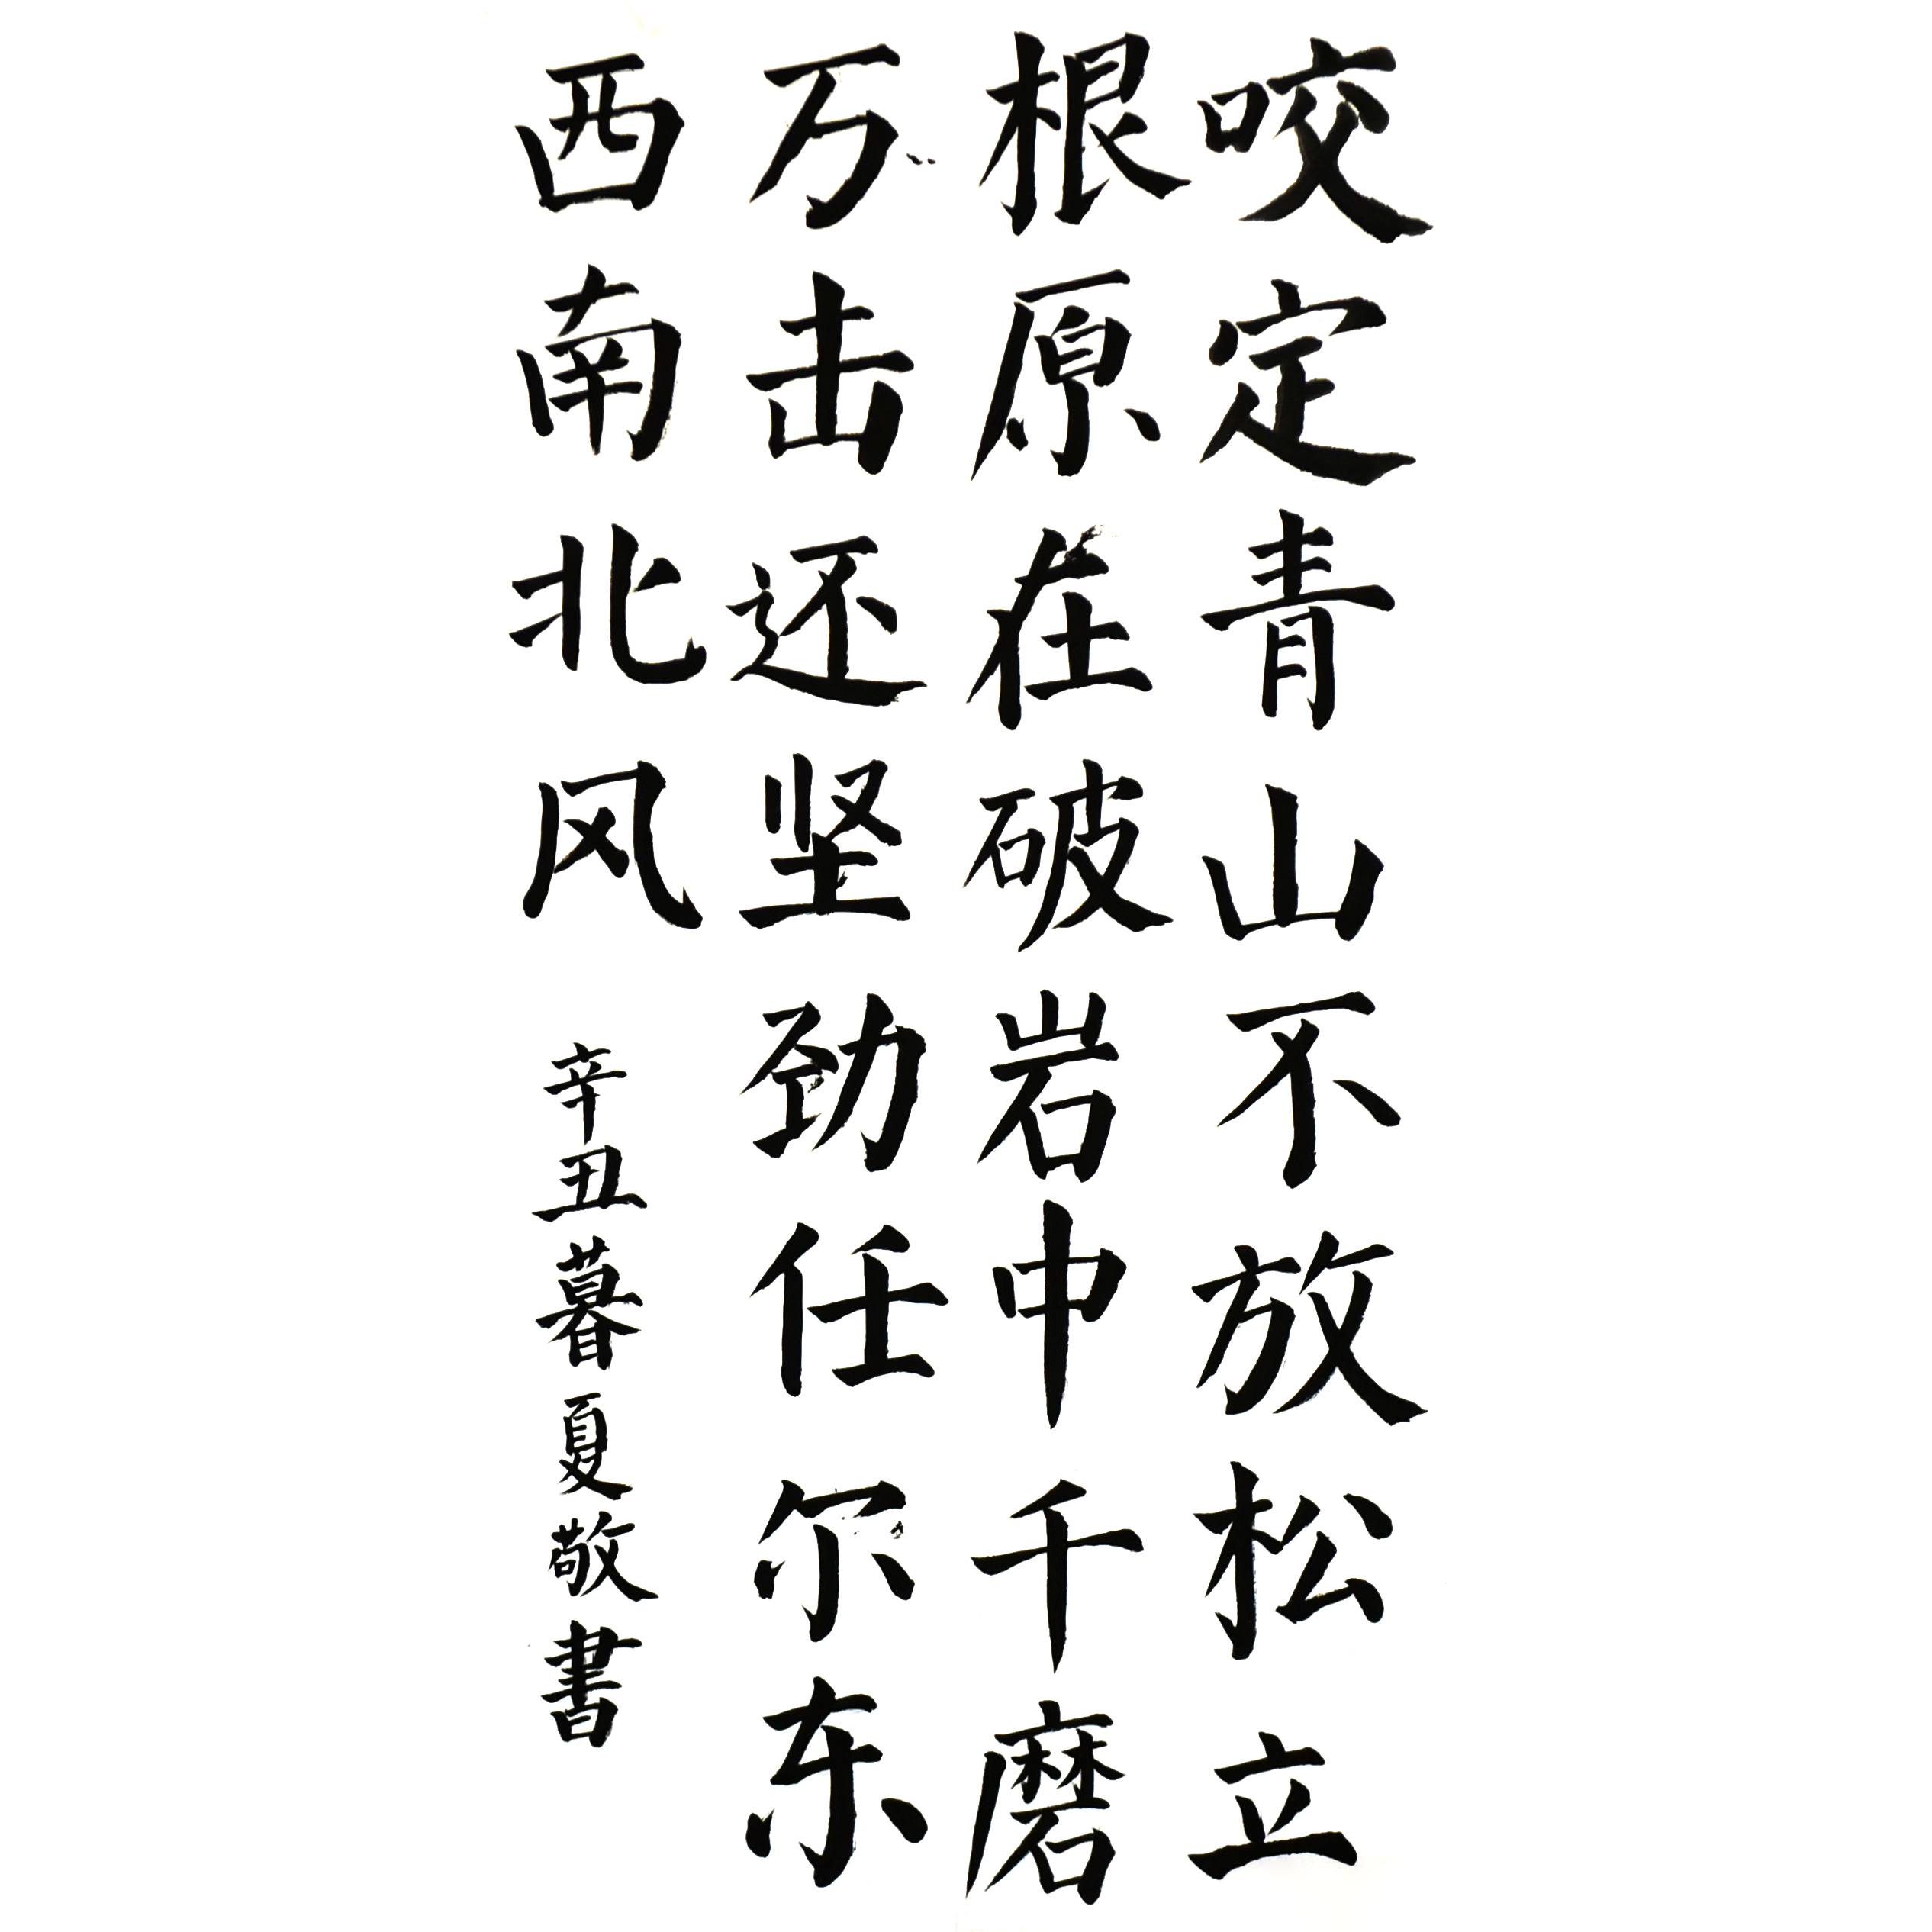 咬定青山不放松立
根原在破岩中千磨
万击还坚劲任尔东
西南北风
辛丑暮夏敬書